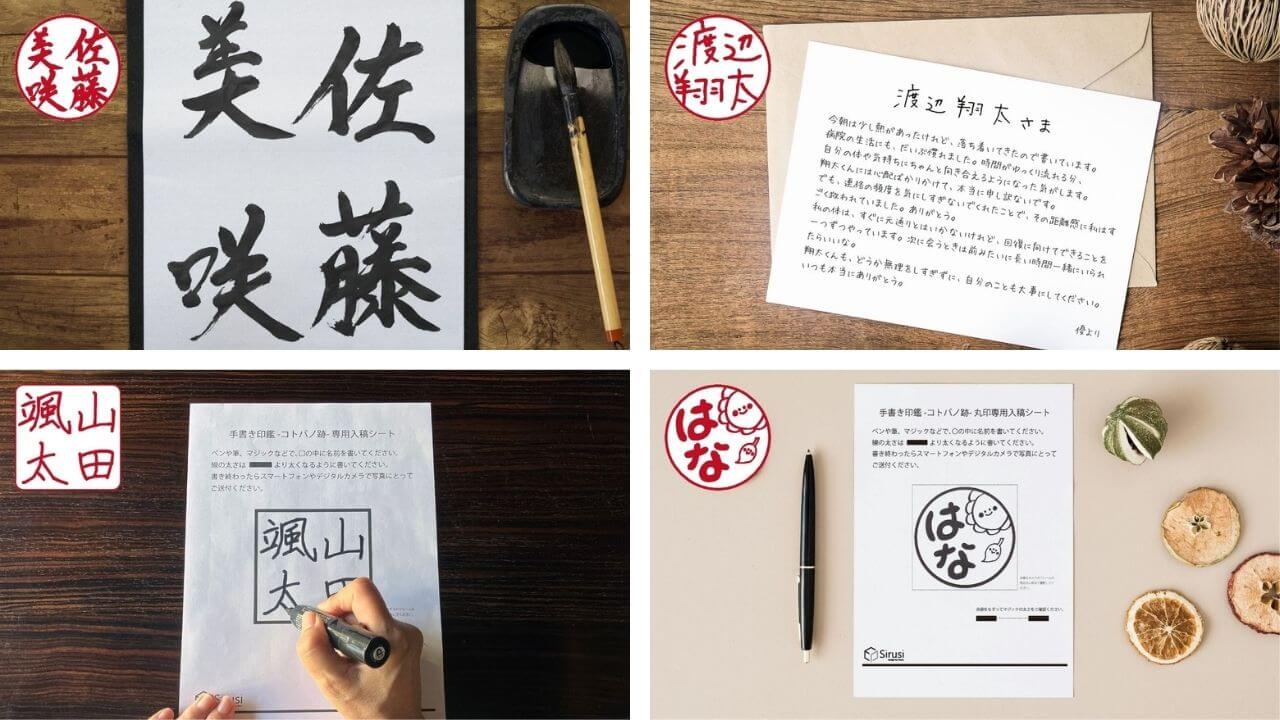 佐藤
美咲
佐藤
美咲
渡辺
翔太
渡辺翔太さま
今朝は少し熱があったけれど、落ち着いてきたので書いています。
病院の生活にも、だいぶ慣れました。時間がゆっくり流れる分、
自分の体や気持ちにちゃんと向き合えるようになった気がします。
翔太くんには心配ばかりかけて、本当に申し訳ないです。
でも、連絡の頻度を気にしすぎないでくれたことで、その距離感に私はす
ごく救われていました。ありがとう。
私の体は、すぐに元通りとはいかないけれど、回復に向けてできることを
一つずつやっています。次に会うときは前みたいに長い時間一緒にいられ
たらいいな。
翔太くんも、どうか無理をしすぎずに、自分のことも大事にしてください。
いつも本当にありがとう。
優より
山田
颯太
手書き印鑑 -コトバノ跡- 専用入稿シート
ペンや筆、マジックなどで、□の中に名前を書いてください。
線の太さは より太くなるように書いてください。
書き終わったらスマートフォンやデジタルカメラで写真にとって
ご送付ください。
山田
颯太
Sirusi
はな
手書き印鑑 -コトバノ跡- 丸印専用入稿シート
ペンや筆、マジックなどで、〇の中に名前を書いてください。
線の太さは より太くなるように書いてください。
書き終わったらスマートフォンやデジタルカメラで写真にとって
ご送付ください。
はな
Sirusi